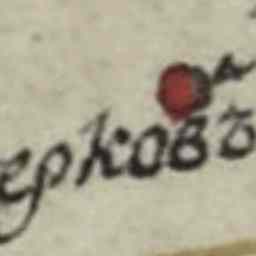 ерковъ